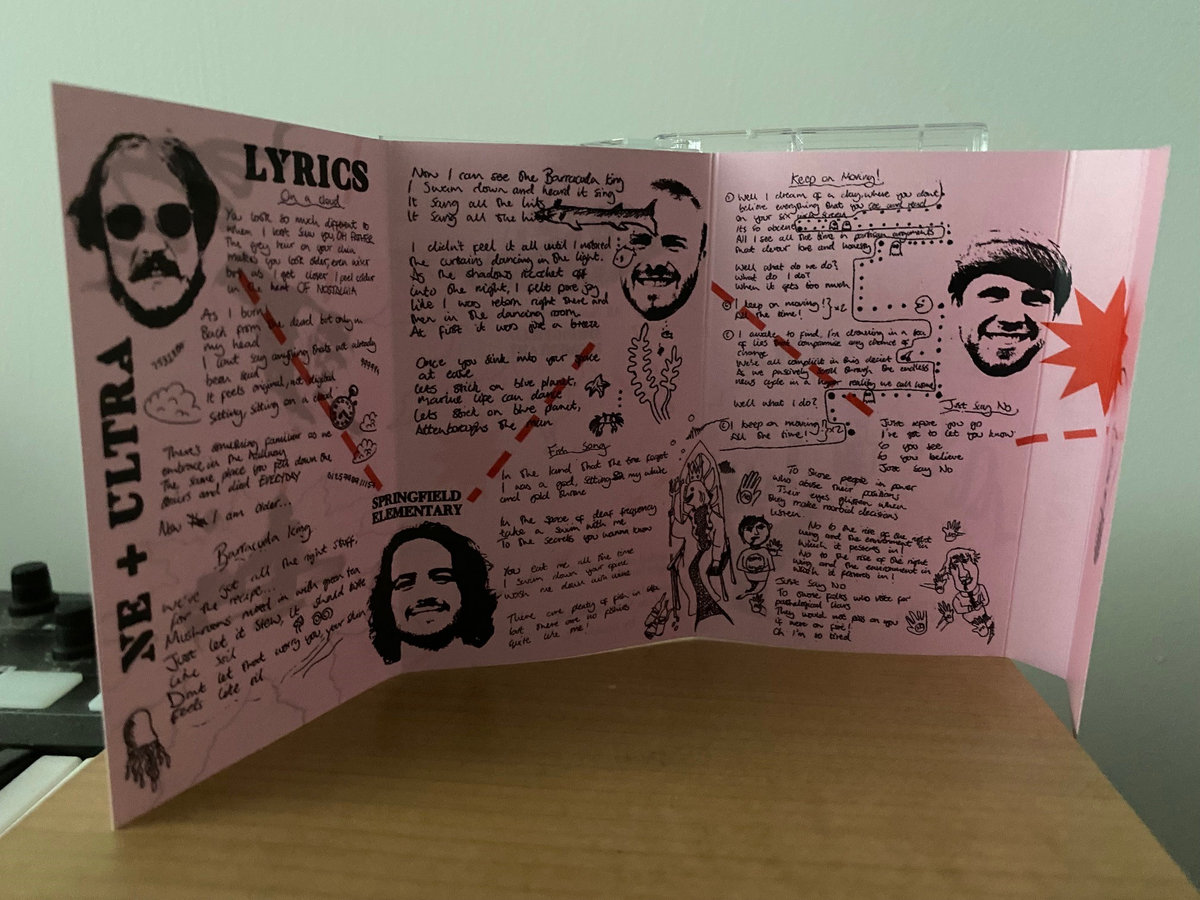 LYRICS
On a cloud
You look so much different to
when I last saw you, OH FATHER
The grey hair on your chin
makes you look older, even wiser
but as I get closer I feel colder
in the heat OF NOSTALGIA
As I burn
Back from the dead but only in
my head
I wont say anything thats not already
been said
It feels original, not digital
Sitting, sitting on a cloud
There's something familiar as we
embrace in the hallway
The same place you fell down the
stairs and died EVERYDAY
Now I am older...
Barracuda King
We've got all the right stuff,
for the recipe...
Mushrooms mixed in with green tea
Just let it stew, it should
like soil
Dont let that worry you, your skin
feels like oil
NE + ULTRA
Now I can see the Barracuda King
I swam down and heard it sing
It sang all the hits
It sang all the hits
I didn't feel it all until I noticed
the curtains dancing in the light.
As the shadows ricochet off
into the night, I felt pure joy
like I was reborn right there and
then in the dancing room.
At first it was just a breeze
Once you sink into your space
at ease
Lets stick on blue planet,
marine life can dance
Lets stick on blue planet,
Attenboroughs the man
SPRINGFIELD
ELEMENTARY
Fish Song
In the land that the time forgot
I was a god, sitting on my white
and gold throne
In the space of deaf frequency
take a swim with me
To the secrets you wanna know
You eat me all the time
I swim down your spine
Wash me down with wine
There are plenty of fish in the
but there are no fishies
quite like me!
Keep on Moving!
Well I dream of a day, where you dont
believe everything that you see and read
on your six inch screen
Its so obscene
All I see all the time is partisan arguments
that devour love and honesty
Well what do we do?
What do I do?
When it gets too much
I keep on moving! } x2
All the time!
I awake to find, I'm drowning in a sea
of lies that compromise any chance of
change
We're all complicit in this deceit
As we passively scroll through the endless
news cycle in a hyper reality we call home
Well what I do?
I keep on moving! } x2
All the time!
Just Say No
Just before you go
I've got to let you know
So you see
So you believe
Just Say No
To those people in power
who abuse their positions
Their eyes glisten when
they make morbid decisions
Listen
No to the rise of the right
wing and the environment in
which it festers in!
No to the rise of the right
wing and the environment in
which it festers in!
Just Say No
To those folks who vote for
pathological liars
They would not piss on you
if were on fire!
Oh I'm so tired